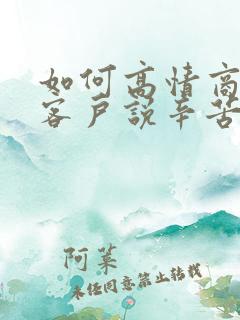 如何高情商
客户说辛苦
阿菜
未经同意禁止转载